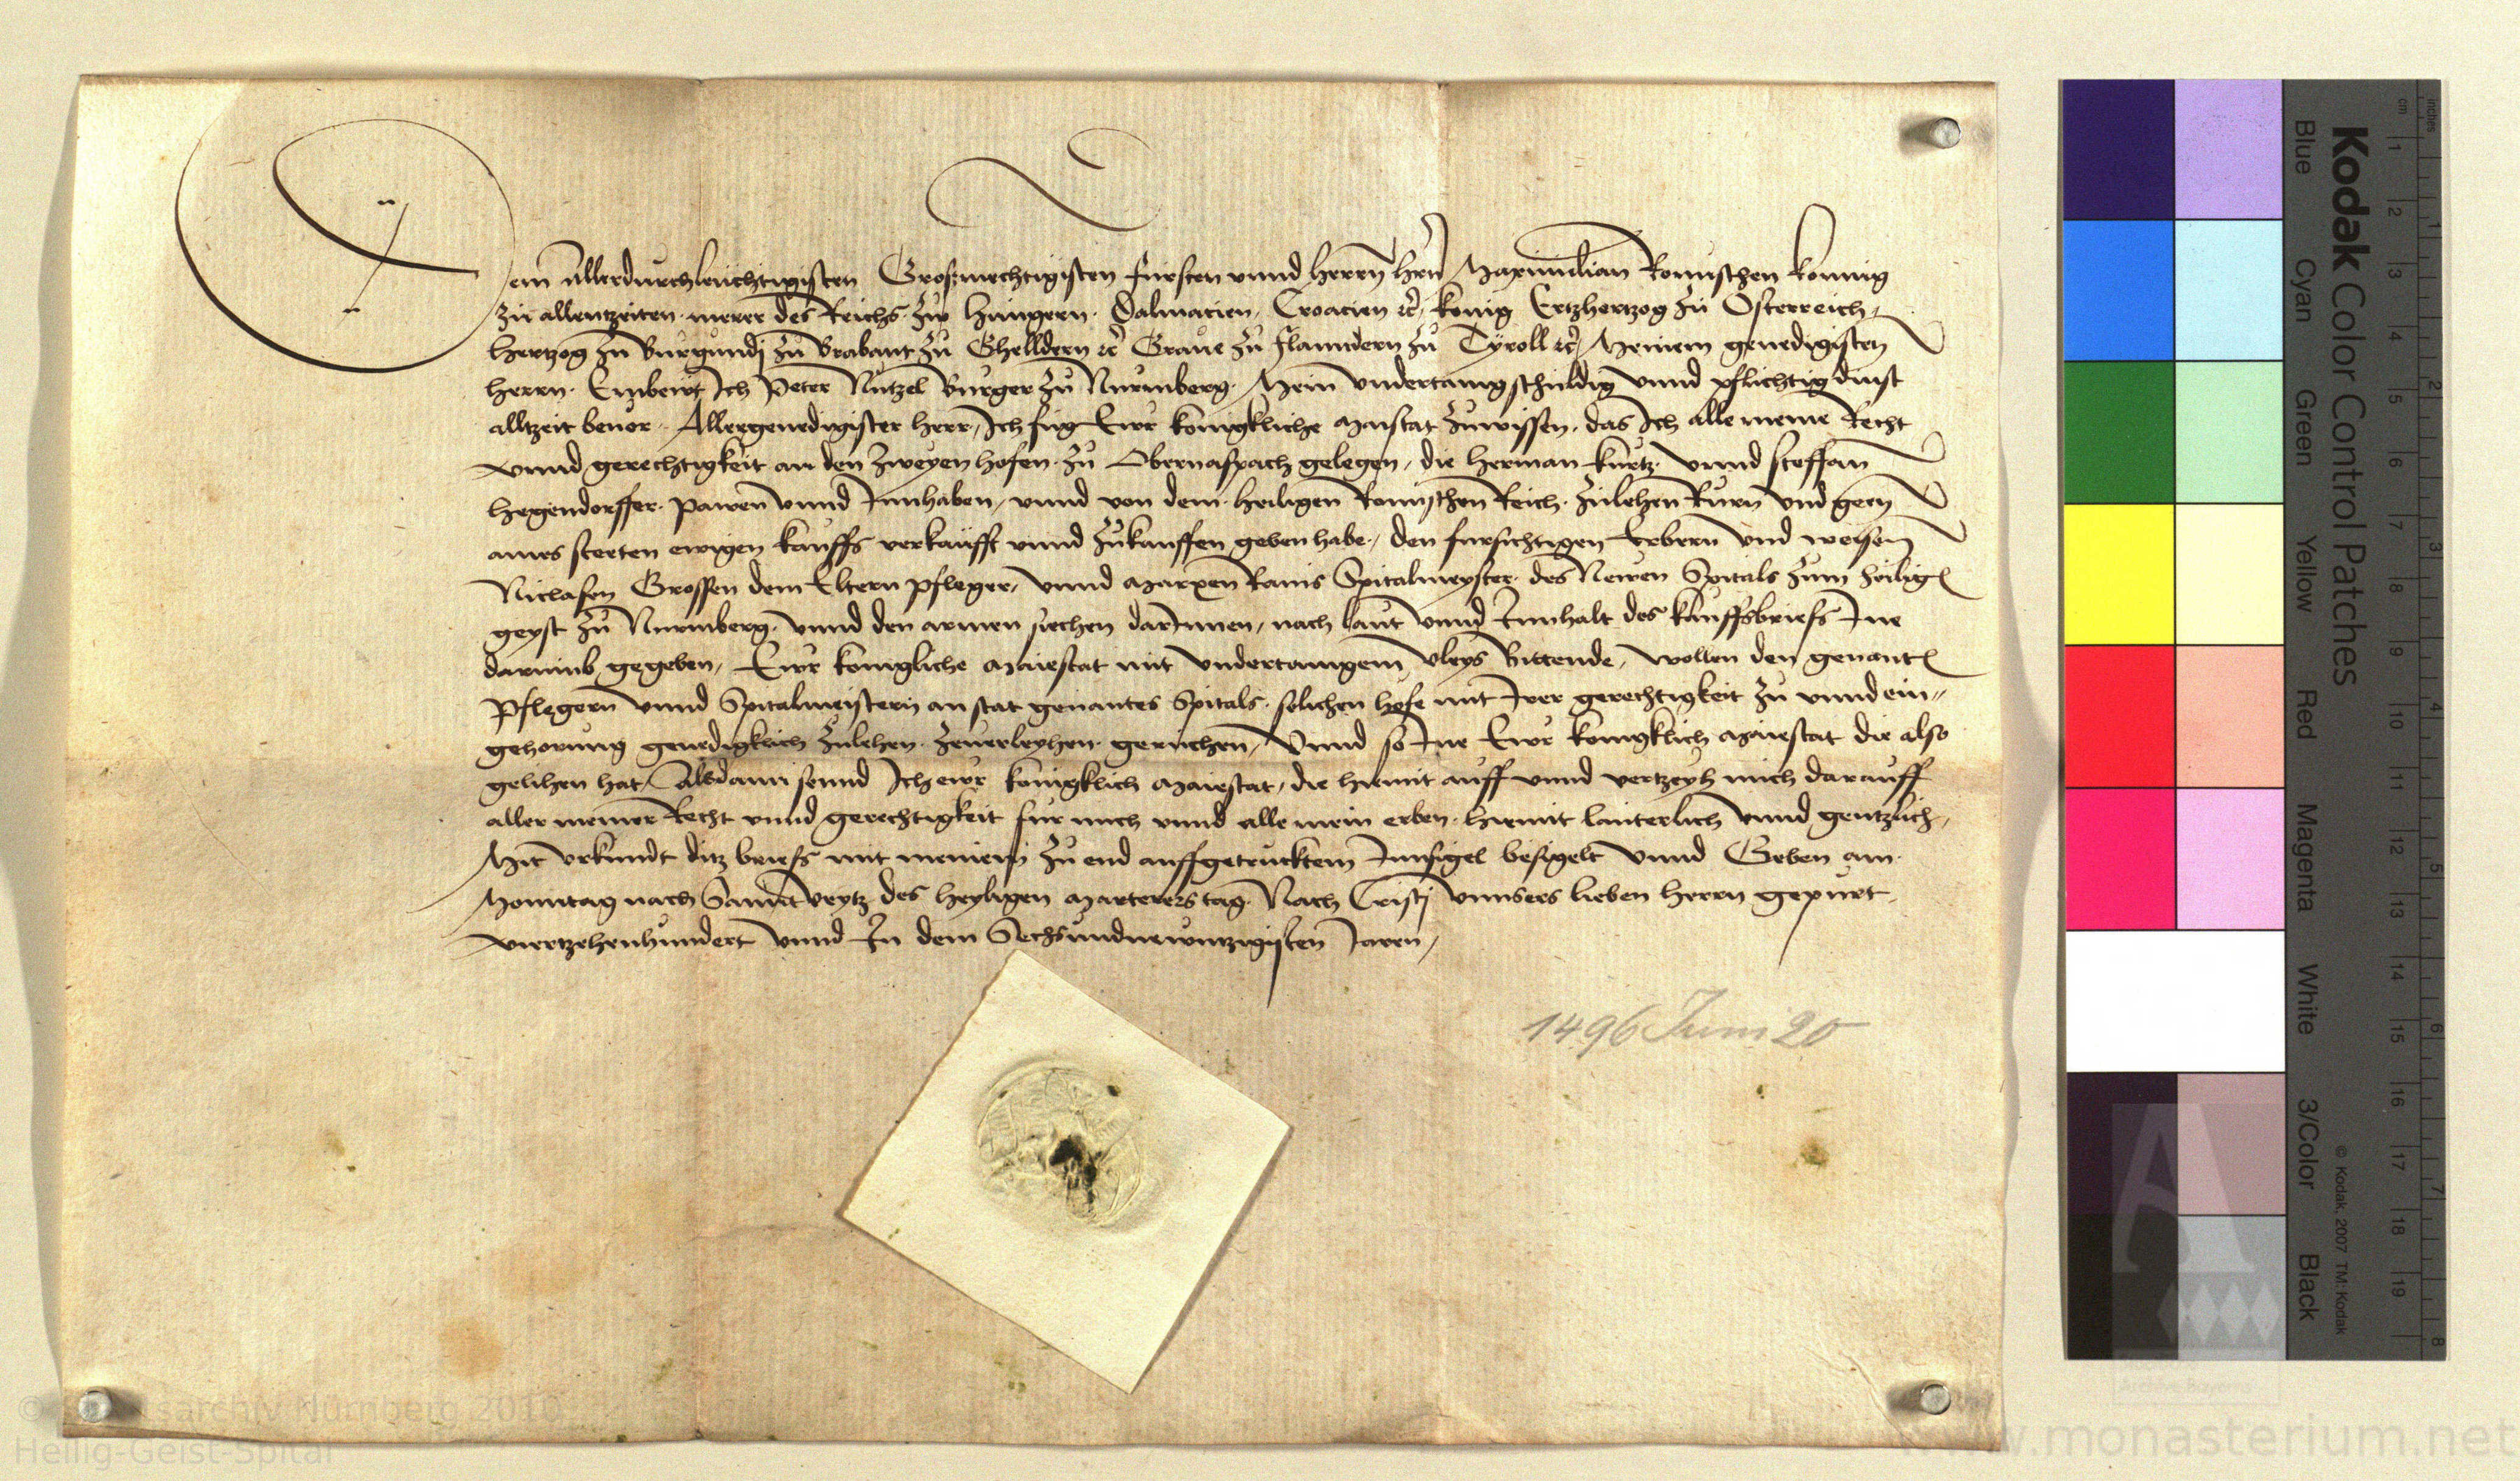 Dem Allerdurchleuchtigisten Großmechtigisten fursten vnnd herrn hrn Maximilian Romischen konnig
zu allentzeiten merer des Reichs zw hungern Dalmatien Croacien etc konig Ertzhertzog zu Osterreich
hertzog zu Burgundj zu Brabant zu Ghelldern etc Graue zu flanndern zu Tyroll etc Meinem genedigisten
herrn Embeut Ich Peter Nützel Burger zu Nuremberg Mein vndertanig schuldig vnnd pflichtig dinst
alltzeit beuor Allergenedigister herr, Ich fug Ewr konigkliche Maistat zuwissen, das Ich alle meine Recht
vnnd gerechtigkeit an den zweyen hofen zu Obernaspach gelegen, die herman kurtz vnnd steffan
hegendorffer pawen vnnd Innhaben, vnnd von dem heiligen Romischen Reich zulehen Rurn vnd geen
aines steeten ewigen kauffs verkaufft vnnd zukauffen geben habe, den fursichtigen Erbern vnd weysen
Niclasen Grossen dem Eltern pfleger, vnnd Marxen Spitalmeyster des Newen Spitals zum heilig
geyst zu Nuremberg vnnd den armen siechen darInnen, nach laut vnnd Innhalt des kauffsbriefs Ine
darumb gegeben, Ewr konigliche Maiestat mit vndertanigem vleys Bittende, wollen den genant
Pflegern vnnd Spitalmeistern an stat genantes Spitals solichen hofe mit Irer gerechtigkeit zu vnnd ein-
gehorung genedigklich zulehen zeuerleyhen geruchen, Vnnd so Ine Ewr konigklich Maiestat die also
gelihen hat, Alsdann sennd Ich ewr konigklich Maiestat, die hiemit auff vnnd vertzeyh mich darauff
aller meiner Recht vnnd gerechtigkeit fur mich vnnd alle mein erben hiemit lauterlich vnnd gentzlich,
Mit vrkundt ditz briefs mit meinem zu end auffgetrucktem Innsigel besigelt Vnnd Geben am
Monntag nach Sannt Veytz des heyligen Marterers tag Nach Cristj vnnsers lieben herrn gepurt
viertzehenhundert vnnd In dem Sechsundnewntzigisten Jaren,
1496 Juni 20
Kodak Color Control Patches
© Kodak, 2007 TM: Kodak
Blue Cyan Green Yellow Red Magenta White 3/Color Black
cm 1 2 3 4 5 6 7 8 9 10 11 12 13 14 15 16 17 18 19
inches 1 2 3 4 5 6 7 8
© Staatsarchiv Nürnberg 2010
Heilig-Geist-Spital
www.monasterium.net